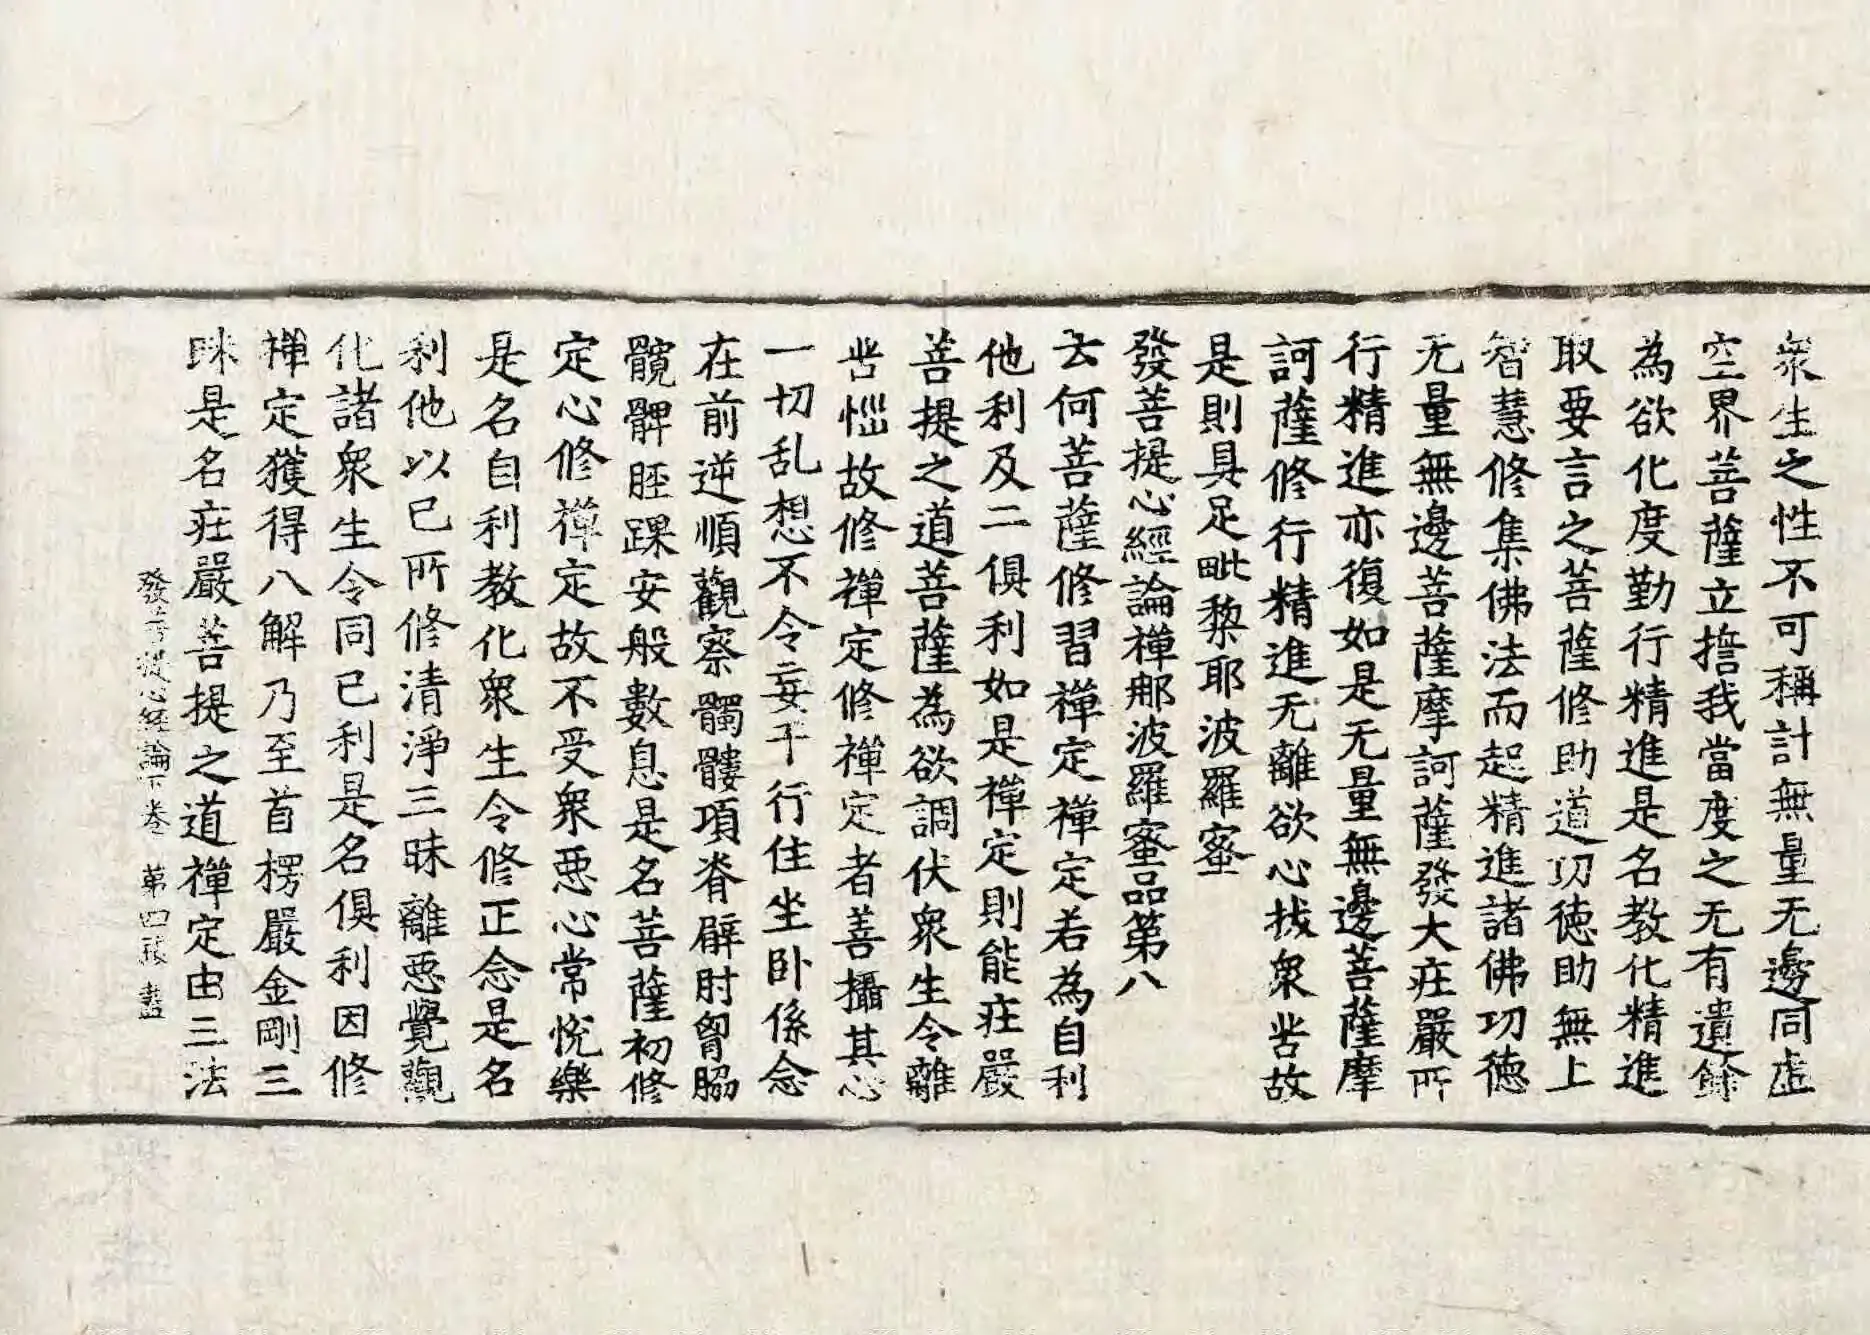 衆生之性不可稱計無量无邊同虛
空界菩薩立擔我當度之无有遺餘
為欲化度勤行精進是名教化精進
取要言之菩薩修助道功徳助無上
智慧修集佛法而起精進諸佛功徳
无量無邊菩薩摩訶薩發大莊嚴所
行精進亦復如是无量無邊菩薩摩
訶薩修行精進无離欲心拔衆苦故
是則具足毗棃耶波羅蜜
發菩提心經論禪那波羅蜜品第八
云何菩薩修習禪定禪定若為自利
他利及二俱利如是禪定則能莊嚴
菩提之道菩薩為欲調伏衆生令離
苦惱故修禪定修禪定者善攝其心
一切乱想不令妄干行住坐卧係念
在前逆順觀察髑髏項脊臂肘胷脇
髖髀脛踝安般數息是名菩薩初修
定心修禪定故不受衆惡心常悅樂
是名自利教化衆生令修正念是名
利他以已所修清淨三昧離惡覺觀
化諸衆生令同已利是名俱利因修
禪定獲得八解乃至首楞嚴金剛三
昧是名莊嚴菩提之道禪定由三法
發菩提心經論下卷 第四張 盡